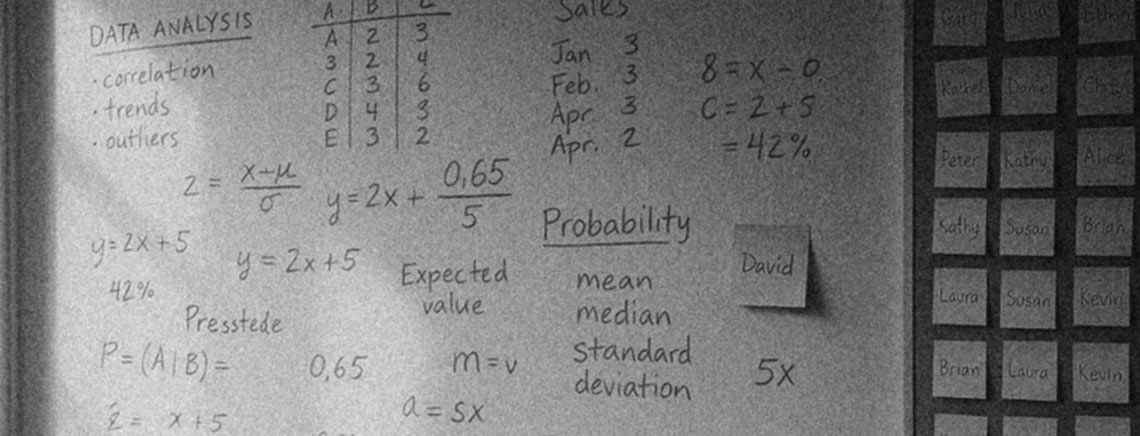 DATA ANALYSIS
• correlation
• trends
• outliers
A. B C
A 2 3
3 2 4
C 3 6
D 4 3
E 3 2
Sales
Jan 3
Feb. 3
Apr 3
Apr. 2
8 = x - 0.
C = 2 + 5
= 42%
z = x-μ/σ
y = 2x + 0,65/5
y = 2x + 5
42%
y = 2x + 5
Presstede
P = (A|B) =
0,65
x + 5
Expected
value
m = v
a = sx
Probability
mean
median
standard
deviation
David
5x
Gary Julia
Rachel Daniel
Peter Kathy Alice
Kathy Susan Brian
Laura Susan Kevin
Brian Laura Kevin